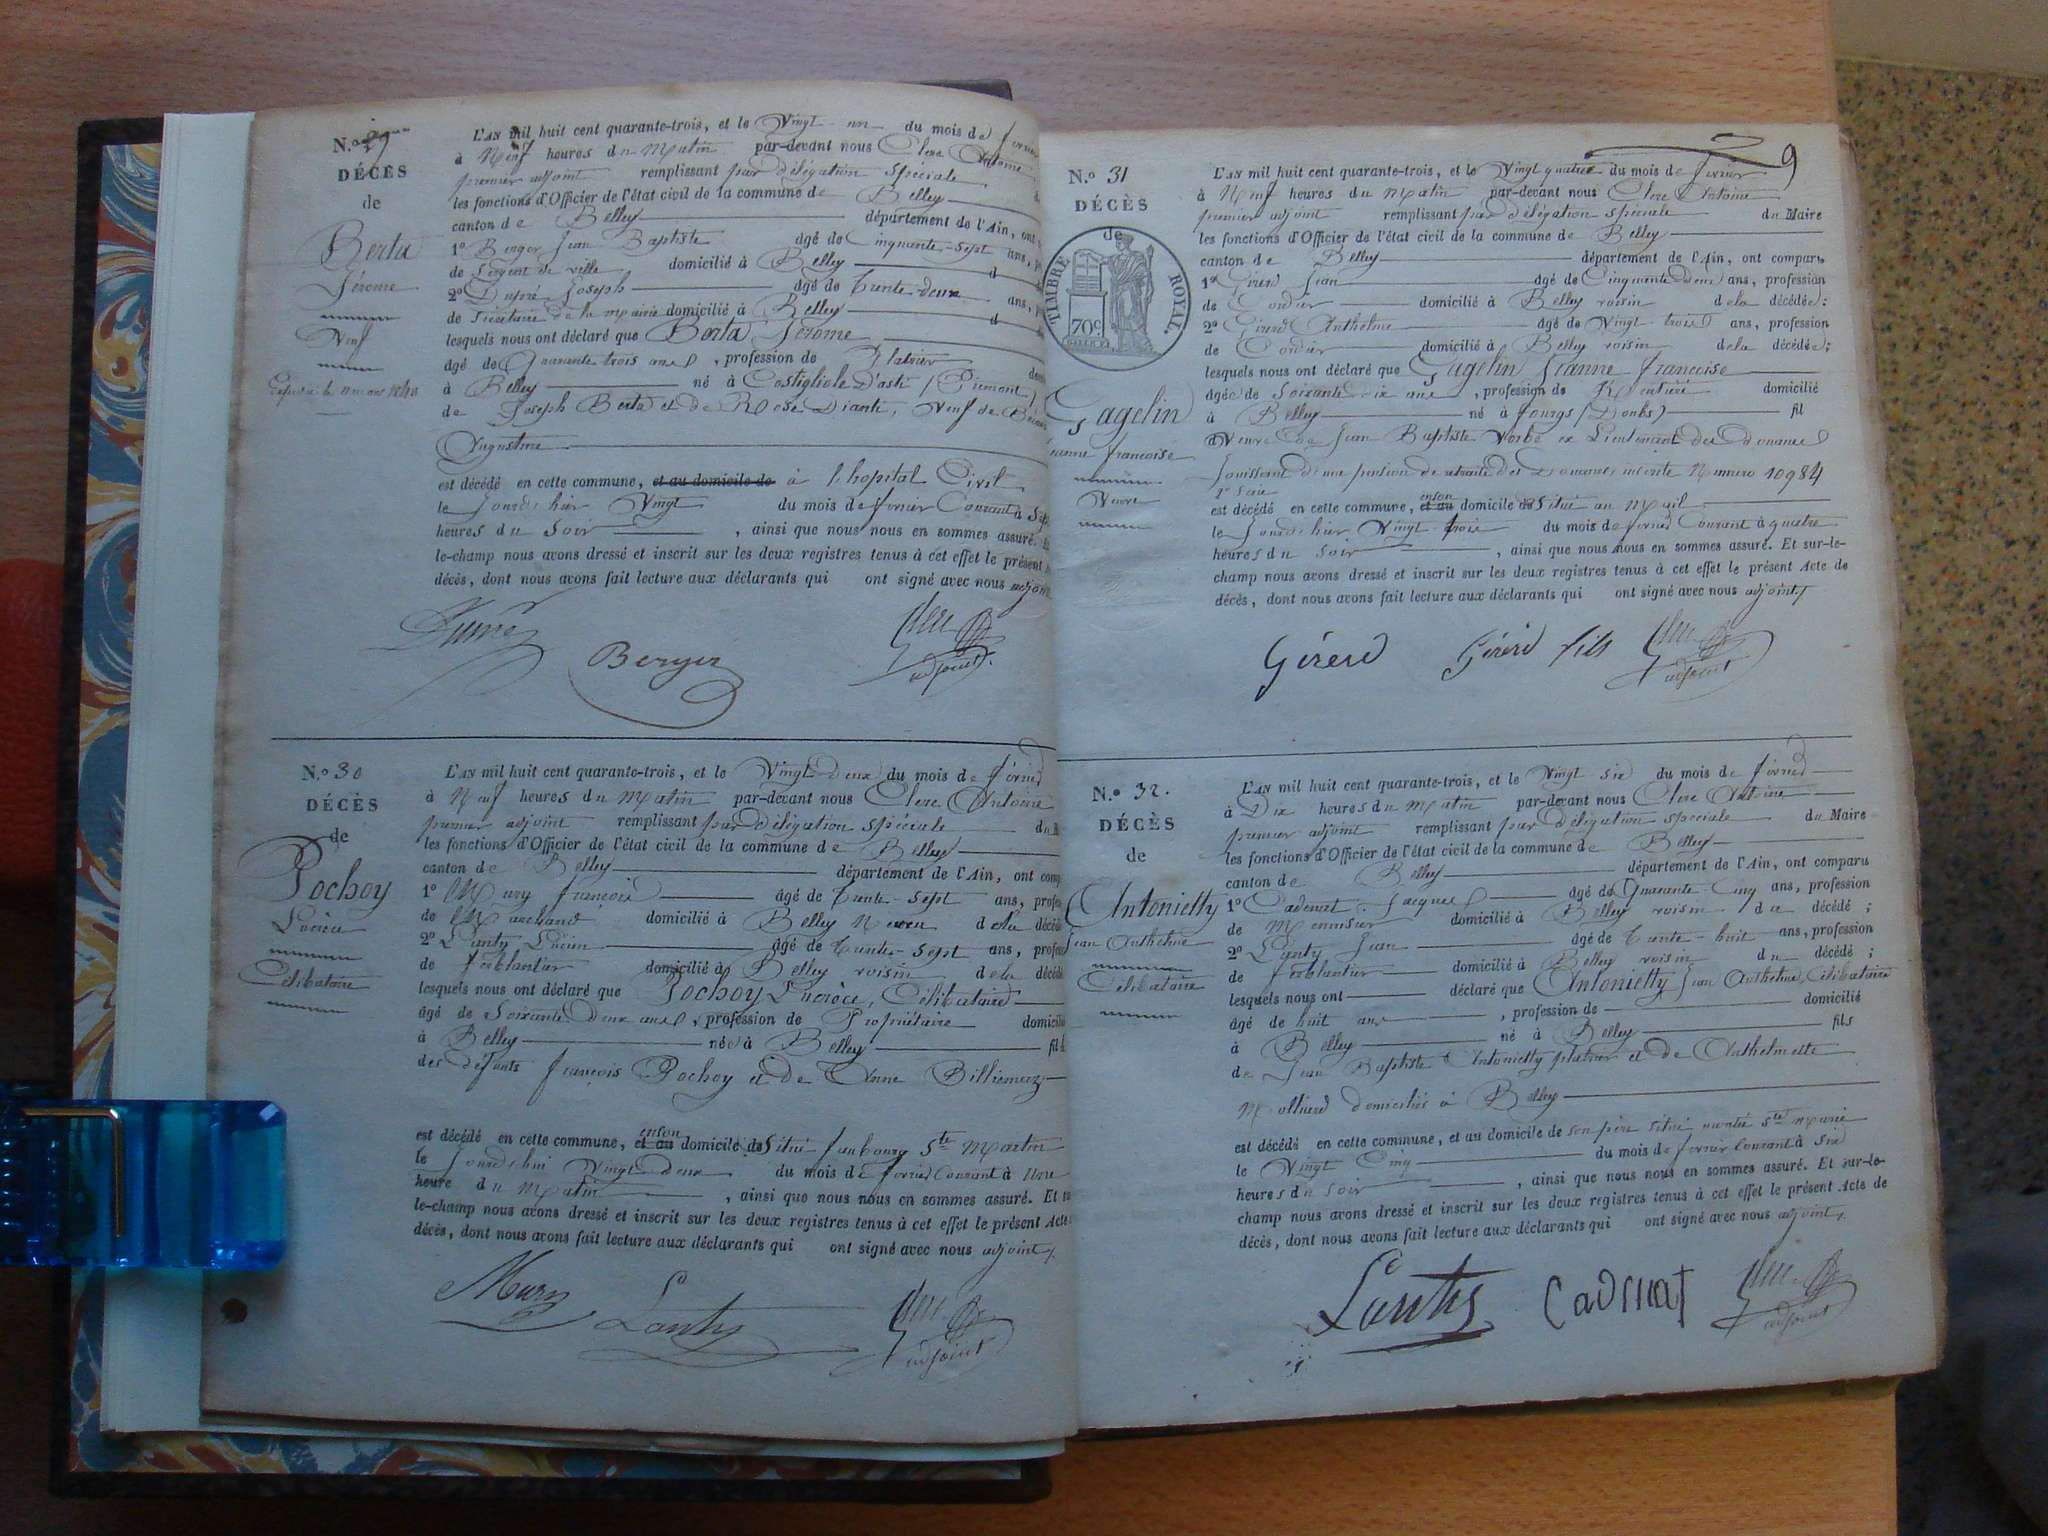 N.o 29
DÉCÈS
de
Berta
Jérome
Veuf
L'AN mil huit cent quarante-trois, et le Vingt un du mois de
à Neuf heures du Matin par-devant nous Clerc Antoine
premier adjoint remplissant par délégation spéciale
les fonctions d'Officier de l'état civil de la commune de Belley
canton de Belley département de l'Ain, ont
1o Berger Jean Baptiste âgé de Cinquante-Sept ans,
de Sergent de ville domicilié à Belley
2o Dupré Joseph âgé de trente-deux ans,
de Secrétaire de la Mairie domicilié à Belley
lesquels nous ont déclaré que Berta Jérome
âgé de Quarante trois ans, profession de Platrier
à Belley né à Costigliole D'asti (Piémont)
de Joseph Berta et de Rose Dianti, Veuf de
Augustine
est décédé en cette commune, et au domicile de à l'hopital Civil
le Jourd'hier Vingt du mois de fevrier Courant à
heures du Soir, ainsi que nous nous en sommes assuré.
le-champ nous avons dressé et inscrit sur les deux registres tenus à cet effet le présent
décès, dont nous avons fait lecture aux déclarants qui ont signé avec nous adjoint
Berger
adjoint
N.o 30
DÉCÈS
de
Pochoy
Lucrèce
Célibataire
L'AN mil huit cent quarante-trois, et le Vingt Deux du mois de fevrier
à Neuf heures du Matin par-devant nous Clerc Antoine
premier adjoint remplissant par délégation spéciale du
les fonctions d'Officier de l'état civil de la commune de Belley
canton de Belley département de l'Ain, ont
1o Mury françois âgé de trente-sept ans,
de Marchand domicilié à Belley Neveu de la
2o Lanty Lucien âgé de trente-sept ans,
de ferblantier domicilié à Belley voisin de la
lesquels nous ont déclaré que Pochoy Lucrèce, Célibataire
âgé de Soixante Deux ans, profession de Propriétaire
à Belley née à Belley
des défunts françois Pochoy et de Anne Billiemaz
est décédé en cette commune, et au enson domicile de Situé faubourg Ste Martin
le Jourd'hui Vingt deux du mois de fevrier Courant à Une
heure du Matin, ainsi que nous nous en sommes assuré. Et
le-champ nous avons dressé et inscrit sur les deux registres tenus à cet effet le présent Acte
décès, dont nous avons fait lecture aux déclarants qui ont signé avec nous adjoint
Mury
Lanty
adjoint
9
N.o 31
DÉCÈS
de
TIMBRE ROYAL
70c
Gagelin
françoise
Veuve
L'AN mil huit cent quarante-trois, et le Vingt quatre du mois de fevrier
à Neuf heures du Matin par-devant nous Clerc Antoine
premier adjoint remplissant par délégation spéciale du Maire
les fonctions d'Officier de l'état civil de la commune de Belley
canton de Belley département de l'Ain, ont comparu
1o Girerd Jean âgé de Cinquante deux ans, profession
de Cordier domicilié à Belley voisin de la décédée;
2o Girerd Anthelme âgé de Vingt trois ans, profession
de Cordier domicilié à Belley voisin de la décédée;
lesquels nous ont déclaré que Gagelin Jeanne françoise
âgée de Soixante dix ans, profession de Rentière domicilié
à Belley né à fourgs (Doubs) fil
Veuve de Jean Baptiste Vorbe ex Lieutenant des douanes
Jouissant d'une pension de retraite des Douanes inscrite Numero 10984
1re Série
est décédé en cette commune, et au enson domicile de Situé au Mail
le Jourd'hier Vingt trois du mois de fevrier Courant à quatre
heures du Soir, ainsi que nous nous en sommes assuré. Et sur-le-
champ nous avons dressé et inscrit sur les deux registres tenus à cet effet le présent Acte de
décès, dont nous avons fait lecture aux déclarants qui ont signé avec nous adjoint
Girerd Girerd fils
adjoint
N.o 32.
DÉCÈS
de
Antonietty
Jean Anthelme
Célibataire
L'AN mil huit cent quarante-trois, et le Vingt Six du mois de fevrier
à Dix heures du Matin par-devant nous Clerc Antoine
premier adjoint remplissant par délégation spéciale du Maire
les fonctions d'Officier de l'état civil de la commune de Belley
canton de Belley département de l'Ain, ont comparu
1o Cadenat Jacques âgé de Quarante-Cinq ans, profession
de Menuisier domicilié à Belley voisin du décédé;
2o Lanty Jean âgé de trente-huit ans, profession
de ferblantier domicilié à Belley voisin du décédé;
lesquels nous ont déclaré que Antonietty Jean Anthelme, Célibataire
âgé de huit ans, profession de domicilié
à Belley né à Belley fils
de Jean Baptiste Antonietty platrier et de Anthelmette
Mollierd domiciliés à Belley
est décédé en cette commune, et au domicile de son père situé montée Ste Marie
le Vingt Cinq du mois de fevrier Courant à Six
heures du Soir, ainsi que nous nous en sommes assuré. Et sur-le-
champ nous avons dressé et inscrit sur les deux registres tenus à cet effet le présent Acte de
décès, dont nous avons fait lecture aux déclarants qui ont signé avec nous adjoint
Lanty Cadenat
adjoint